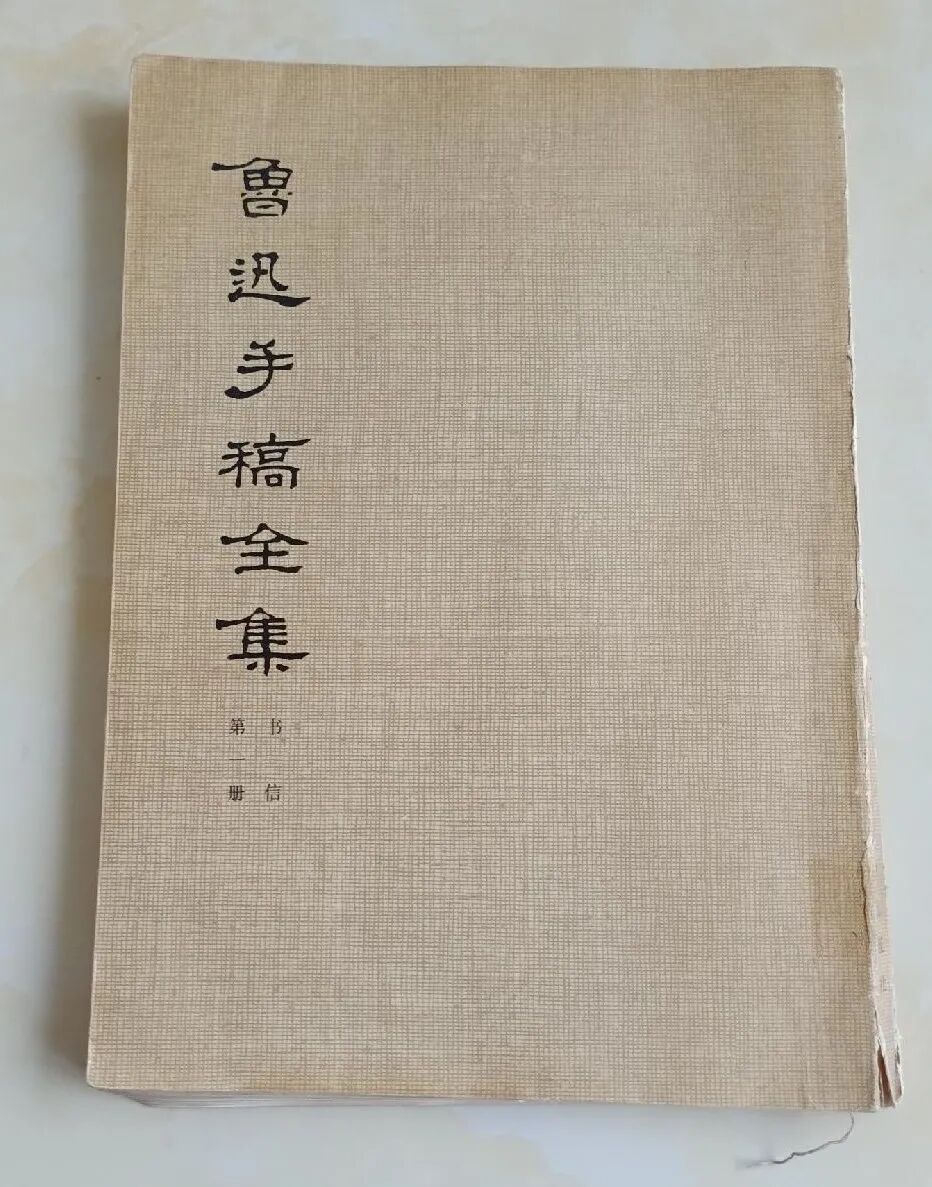 魯迅手稿全集
书信
第一册